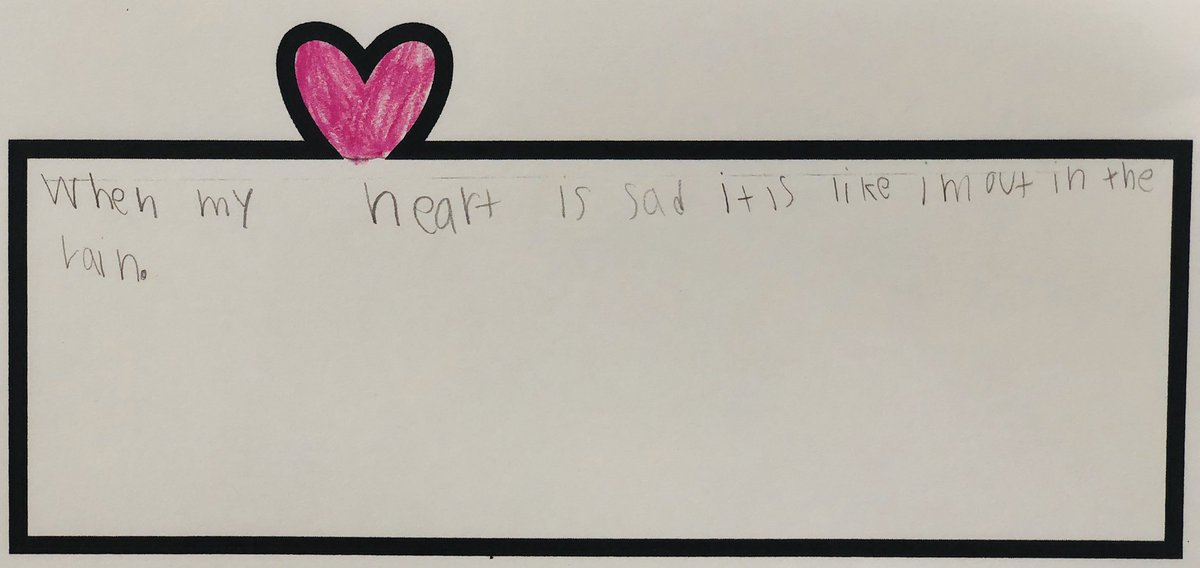 When my heart is sad it is like im out in the
rain.